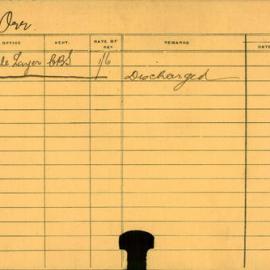 Orr.
OFFICE DEPT. RATE OF PAY REMARKS DATE
le Layer C.B.S 1/6 Discharged